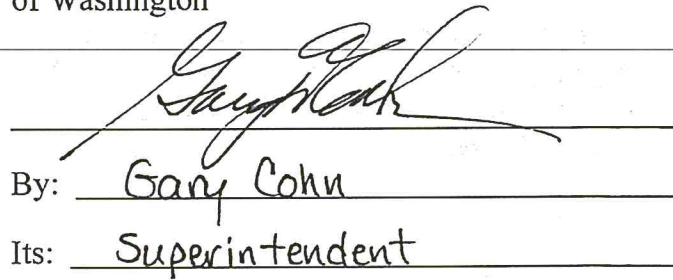 of Washington
By: Gary Cohn
Its: Superintendent